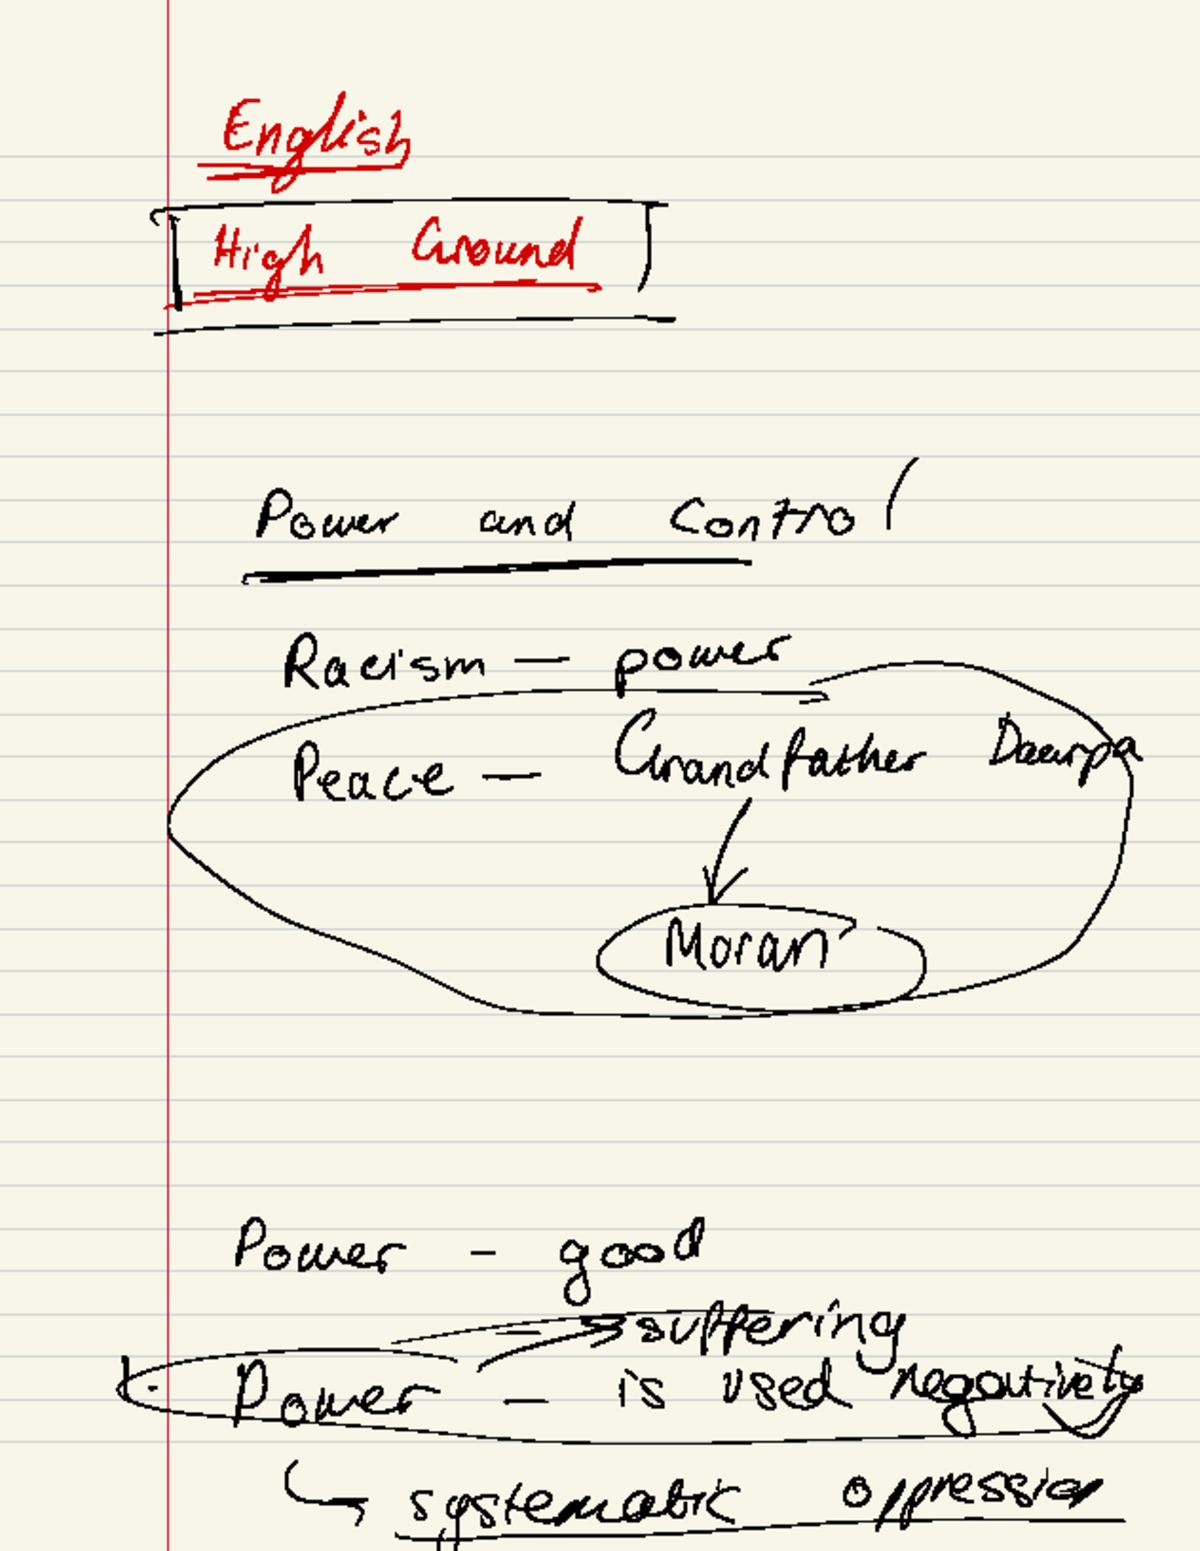 English
High Ground
Power and Control
Racism — power
Peace — Grandfather Daarpa
Moran
Power - good
suffering
Power - is used negatively
systematic oppression